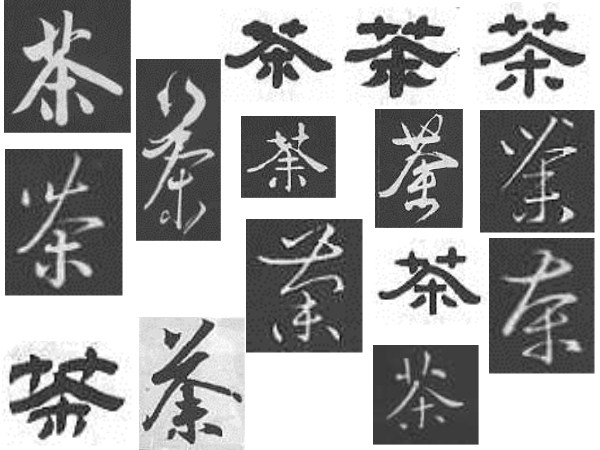 茶 茶 茶 茶
茶 茶 茶 茶
茶 茶 茶 茶
茶 茶 茶